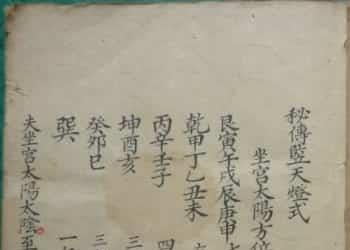 秘傳竪天燈式
坐宮太陽方位
艮寅午戌辰庚申
乾甲丁乙丑未
丙辛壬子 四
坤酉亥 三
癸卯巳 三
巽 一
夫坐宮太陽太陰至